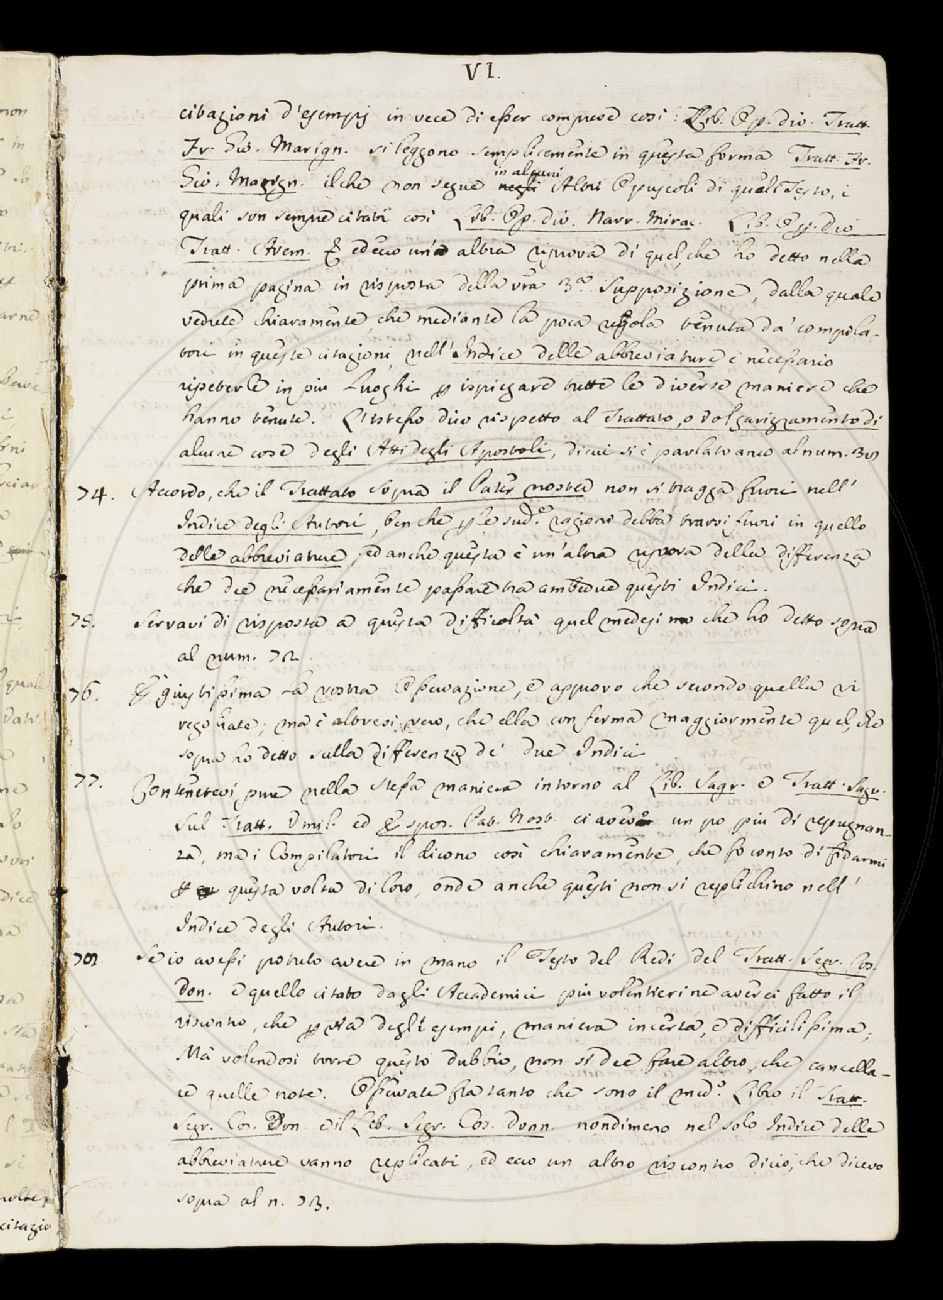 VI.
citazioni d'esempj in vece di esser compuere così: Lib. Op. div. Tratt.
Fr. Gio. Marign. si leggono semplicemente in questa forma Tratt. Fr.
Gio. Marign. il che non segue in alcuni Altri Opuscoli di quel Testo, i
quali son sempre citati così Lib. Op. div. Narr. Mirac. Lib. Op. div.
Tratt. Avem. ed ecco un'altra riprova di quel, che ho detto nella
prima pagina in risposta della vra 3.a supposizione, dalla quale
vedrete chiaramente, che mediante la poca regola tenuta da' compila-
tori in queste citazioni, nell'Indice delle abbreviature è necessario
ripeterle in più Luoghi p ispiegare tutte le diverse maniere che
hanno tenute. L'istesso dico rispetto al Trattato, o volgarizzamento di
alcune cose degli Atti degli Apostoli, di cui si è parlato anco al num.
74. Accordo, che il Trattato sopra il Pater nostro non si tragga fuori nell'
Indice degli Autori, benche p le sud.e ragioni debba trarsi fuori in quello
delle abbreviature, ed anche questa è un'altra riprova della differenza
che dee necessariamente passare tra ambedue questi Indici.
75. Servavi di risposta a questa difficoltà quel medesimo che ho detto sopra
al num. 72.
76. È giustissima la vostra Osservazione, e approvo che secondo quella vi
regoliate; ma è altresì vero, che ella conferma maggiormente quel, che
sopra ho detto sulla differenza de' due Indici
77. Contenetevi pure nella stessa maniera intorno al Lib. Sagr. e Tratt. Sagr.
Sul Tratt. Umil. ed Espos. Pat. Nost. ci avevo un po più di repugnan-
za, ma i Compilatori il dicono così chiaramente, che fo conto di fidarmi
p questa volta di loro, onde anche questi non si replichino nell'
Indice degli Autori.
78. Se io avessi potuto avere in mano il Testo del Redi del Tratt. Segr. Cos.
Don. e quello citato dagli Accademici più volentieri ne averei fatto il
riscontro, che p via degli esempi, maniera incerta, e difficilissima;
Mà volendosi torre questo dubbio, non si dee fare altro, che cancella-
re quelle note. Osservate fra tanto che sono il med.o Libro il Tratt.
Segr. Cos. Don. e il Lib. Segr. Cos. Donn. nondimeno nel solo Indice delle
abbreviature vanno replicati, ed ecco un altro riscontro di ciò, che dicevo
sopra al n. 73.